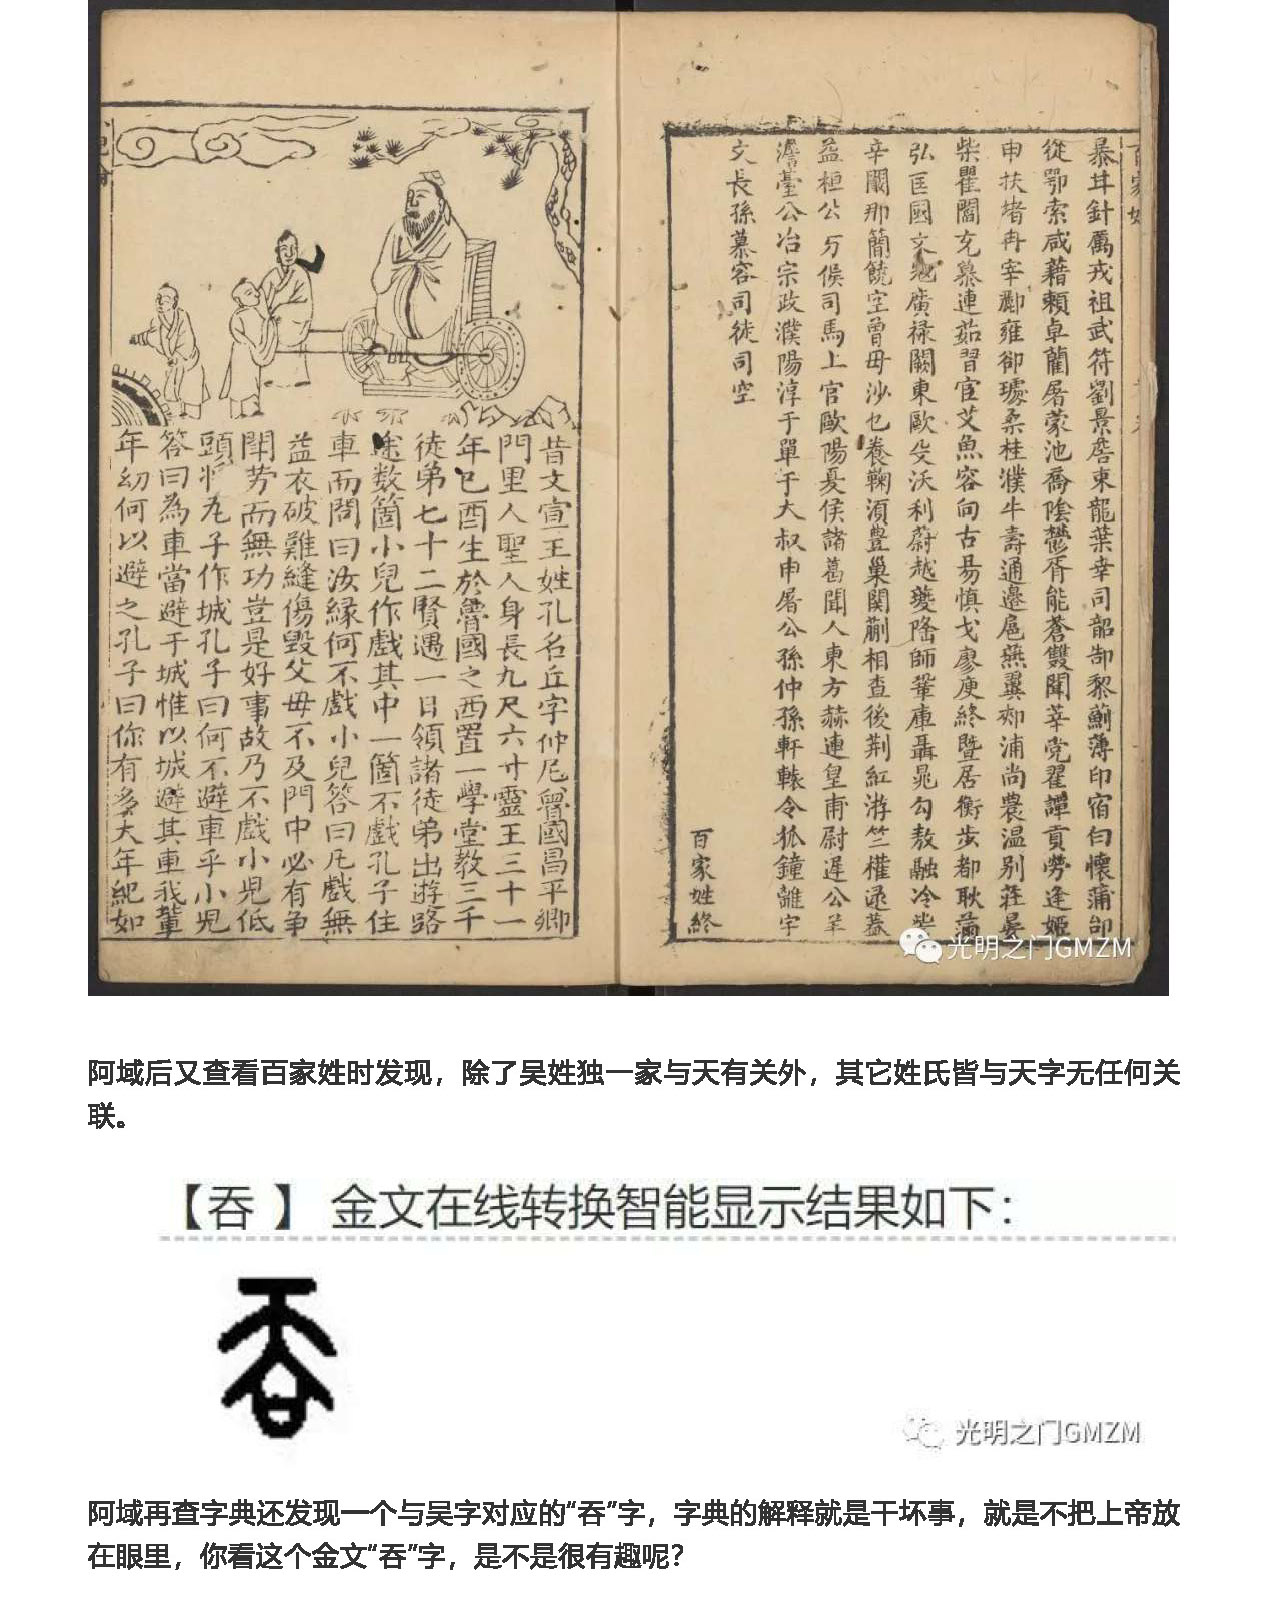 百家姓
暴甘針厲戎祖武符劉景詹東龍葉幸司韶郜黎薊薄印宿白懷蒲邰
從鄂索咸藉賴卓藺屠蒙池喬陰鬱胥能蒼雙聞莘党翟譚貢勞逄姬
申扶堵冉宰酈雍卻璩桑桂濮牛壽通邊扈燕冀郟浦尚農温别莊晏
柴瞿閻充慕連茹習宦艾魚容向古易慎戈廖庾終暨居衡步都耿滿
弘匡國文寇廣禄闕東歐殳沃利蔚越夔隆師鞏庫聶晁勾敖融冷訾
辛闞那簡饒空曾毋沙乜養鞠湏豊巢関蒯相查後荆紅游竺權逯蓋
益桓公万俟司馬上官歐陽夏侯諸葛聞人東方赫連皇甫尉遲公羊
澹臺公冶宗政濮陽淳于單于大叔申屠公孫仲孫軒轅令狐鐘離宇
文長孫慕容司徒司空
百家姓終
昔文宣王姓孔名丘字仲尼魯國昌平鄉
門里人聖人身長九尺六寸靈王三十一
年己酉生於魯國之西置一學堂教三千
徒弟七十二賢遇一日領諸徒弟出遊路
途数箇小兒作戲其中一箇不戲孔子住
車而問曰汝緣何不戲小兒答曰凡戲無
益衣破難縫傷毀父母不及門中必有争
鬧労而無功豈是好事故乃不戲小兒低
頭將瓦子作城孔子曰何不避車乎小兒
答曰為車當避于城惟以城避其車我輩
年幼何以避之孔子曰你有多大年紀如
光明之门GMZM
阿域后又查看百家姓时发现，除了吴姓独一家与天有关外，其它姓氏皆与天字无任何关
联。
【吞 】 金文在线转换智能显示结果如下：
吞
光明之门GMZM
阿域再查字典还发现一个与吴字对应的“吞”字，字典的解释就是干坏事，就是不把上帝放
在眼里，你看这个金文“吞”字，是不是很有趣呢？